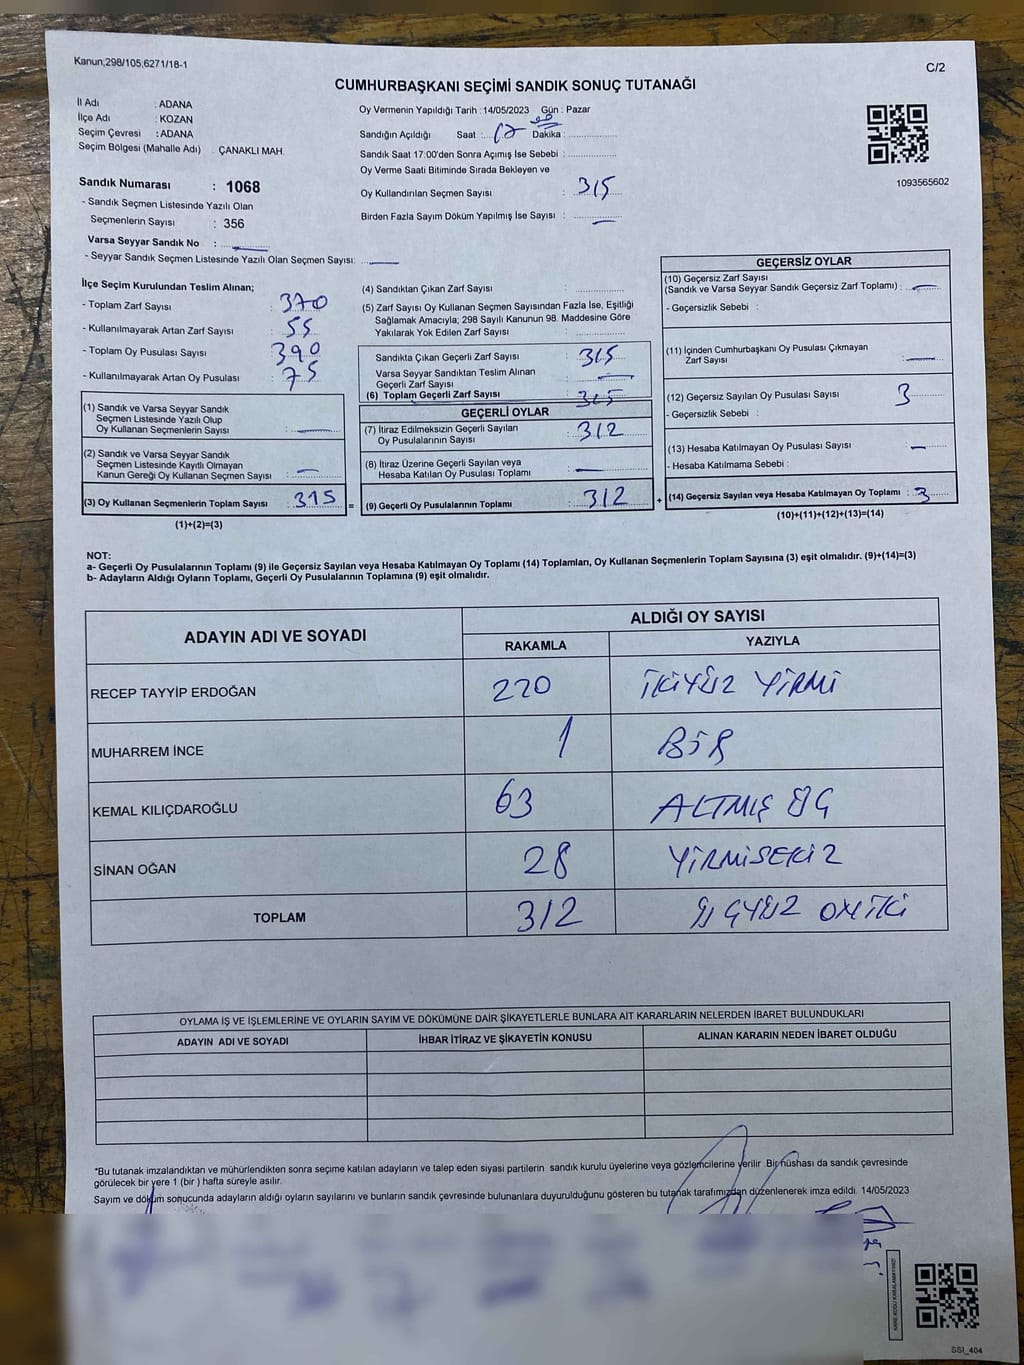 Kanun;298/105,6271/18-1
C/2
CUMHURBAŞKANI SEÇİMİ SANDIK SONUÇ TUTANAĞI
İl Adı : ADANA
İlçe Adı : KOZAN
Seçim Çevresi : ADANA
Seçim Bölgesi (Mahalle Adı) . ÇANAKLI MAH.
Sandık Numarası : 1068
- Sandık Seçmen Listesinde Yazılı Olan
Seçmenlerin Sayısı : 356
Varsa Seyyar Sandık No :
- Seyyar Sandık Seçmen Listesinde Yazılı Olan Seçmen Sayısı:
Oy Vermenin Yapıldığı Tarih : 14/05/2023 Gün : Pazar
Sandığın Açıldığı Saat : 17 Dakika : 00
Sandık Saat 17:00'den Sonra Açımış İse Sebebi :
Oy Verme Saati Bitiminde Sırada Bekleyen ve
Oy Kullandırılan Seçmen Sayısı : 315
Birden Fazla Sayım Döküm Yapılmış İse Sayısı : —
1093565602
İlçe Seçim Kurulundan Teslim Alınan;
- Toplam Zarf Sayısı : 370
- Kullanılmayarak Artan Zarf Sayısı : 55
- Toplam Oy Pusulası Sayısı : 390
- Kullanılmayarak Artan Oy Pusulası : 75
(1) Sandık ve Varsa Seyyar Sandık
Seçmen Listesinde Yazılı Olup
Oy Kullanan Seçmenlerin Sayısı : —
(2) Sandık ve Varsa Seyyar Sandık
Seçmen Listesinde Kayıtlı Olmayan
Kanun Gereği Oy Kullanan Seçmen Sayısı : —
(3) Oy Kullanan Seçmenlerin Toplam Sayısı : 315 =
(1)+(2)=(3)
(4) Sandıktan Çıkan Zarf Sayısı :
(5) Zarf Sayısı Oy Kullanan Seçmen Sayısından Fazla İse, Eşitliği
Sağlamak Amacıyla; 298 Sayılı Kanunun 98. Maddesine Göre
Yakılarak Yok Edilen Zarf Sayısı :
Sandıkta Çıkan Geçerli Zarf Sayısı : 315
Varsa Seyyar Sandıktan Teslim Alınan
Geçerli Zarf Sayısı : —
(6) Toplam Geçerli Zarf Sayısı : 315
GEÇERLİ OYLAR
(7) İtiraz Edilmeksizin Geçerli Sayılan
Oy Pusulalarının Sayısı : 312
(8) İtiraz Üzerine Geçerli Sayılan veya
Hesaba Katılan Oy Pusulası Toplamı : —
(9) Geçerli Oy Pusulalarının Toplamı : 312 +
GEÇERSİZ OYLAR
(10) Geçersiz Zarf Sayısı
(Sandık ve Varsa Seyyar Sandık Geçersiz Zarf Toplamı) : —
- Geçersizlik Sebebi :
(11) İçinden Cumhurbaşkanı Oy Pusulası Çıkmayan
Zarf Sayısı : —
(12) Geçersiz Sayılan Oy Pusulası Sayısı : 3
- Geçersizlik Sebebi :
(13) Hesaba Katılmayan Oy Pusulası Sayısı : —
- Hesaba Katılmama Sebebi :
(14) Geçersiz Sayılan veya Hesaba Katılmayan Oy Toplamı : 3
(10)+(11)+(12)+(13)=(14)
NOT:
a- Geçerli Oy Pusulalarının Toplamı (9) ile Geçersiz Sayılan veya Hesaba Katılmayan Oy Toplamı (14) Toplamları, Oy Kullanan Seçmenlerin Toplam Sayısına (3) eşit olmalıdır. (9)+(14)=(3)
b- Adayların Aldığı Oyların Toplamı, Geçerli Oy Pusulalarının Toplamına (9) eşit olmalıdır.
ADAYIN ADI VE SOYADI
ALDIĞI OY SAYISI
RAKAMLA YAZIYLA
RECEP TAYYİP ERDOĞAN 220 İKİYÜZ YİRMİ
MUHARREM İNCE 1 BİR
KEMAL KILIÇDAROĞLU 63 ALTMIŞ ÜÇ
SİNAN OĞAN 28 YİRMİSEKİZ
TOPLAM 312 ÜÇYÜZ ONİKİ
OYLAMA İŞ VE İŞLEMLERİNE VE OYLARIN SAYIM VE DÖKÜMÜNE DAİR ŞİKAYETLERLE BUNLARA AİT KARARLARIN NELERDEN İBARET BULUNDUKLARI
ADAYIN ADI VE SOYADI İHBAR İTİRAZ VE ŞİKAYETİN KONUSU ALINAN KARARIN NEDEN İBARET OLDUĞU
*Bu tutanak imzalandıktan ve mühürlendikten sonra seçime katılan adayların ve talep eden siyasi partilerin sandık kurulu üyelerine veya gözlemcilerine verilir .Bir nüshası da sandık çevresinde
görülecek bir yere 1 (bir ) hafta süreyle asılır.
Sayım ve döküm sonucunda adayların aldığı oyların sayılarını ve bunların sandık çevresinde bulunanlara duyurulduğunu gösteren bu tutanak tarafımızdan düzenlenerek imza edildi. 14/05/2023
SSI_404